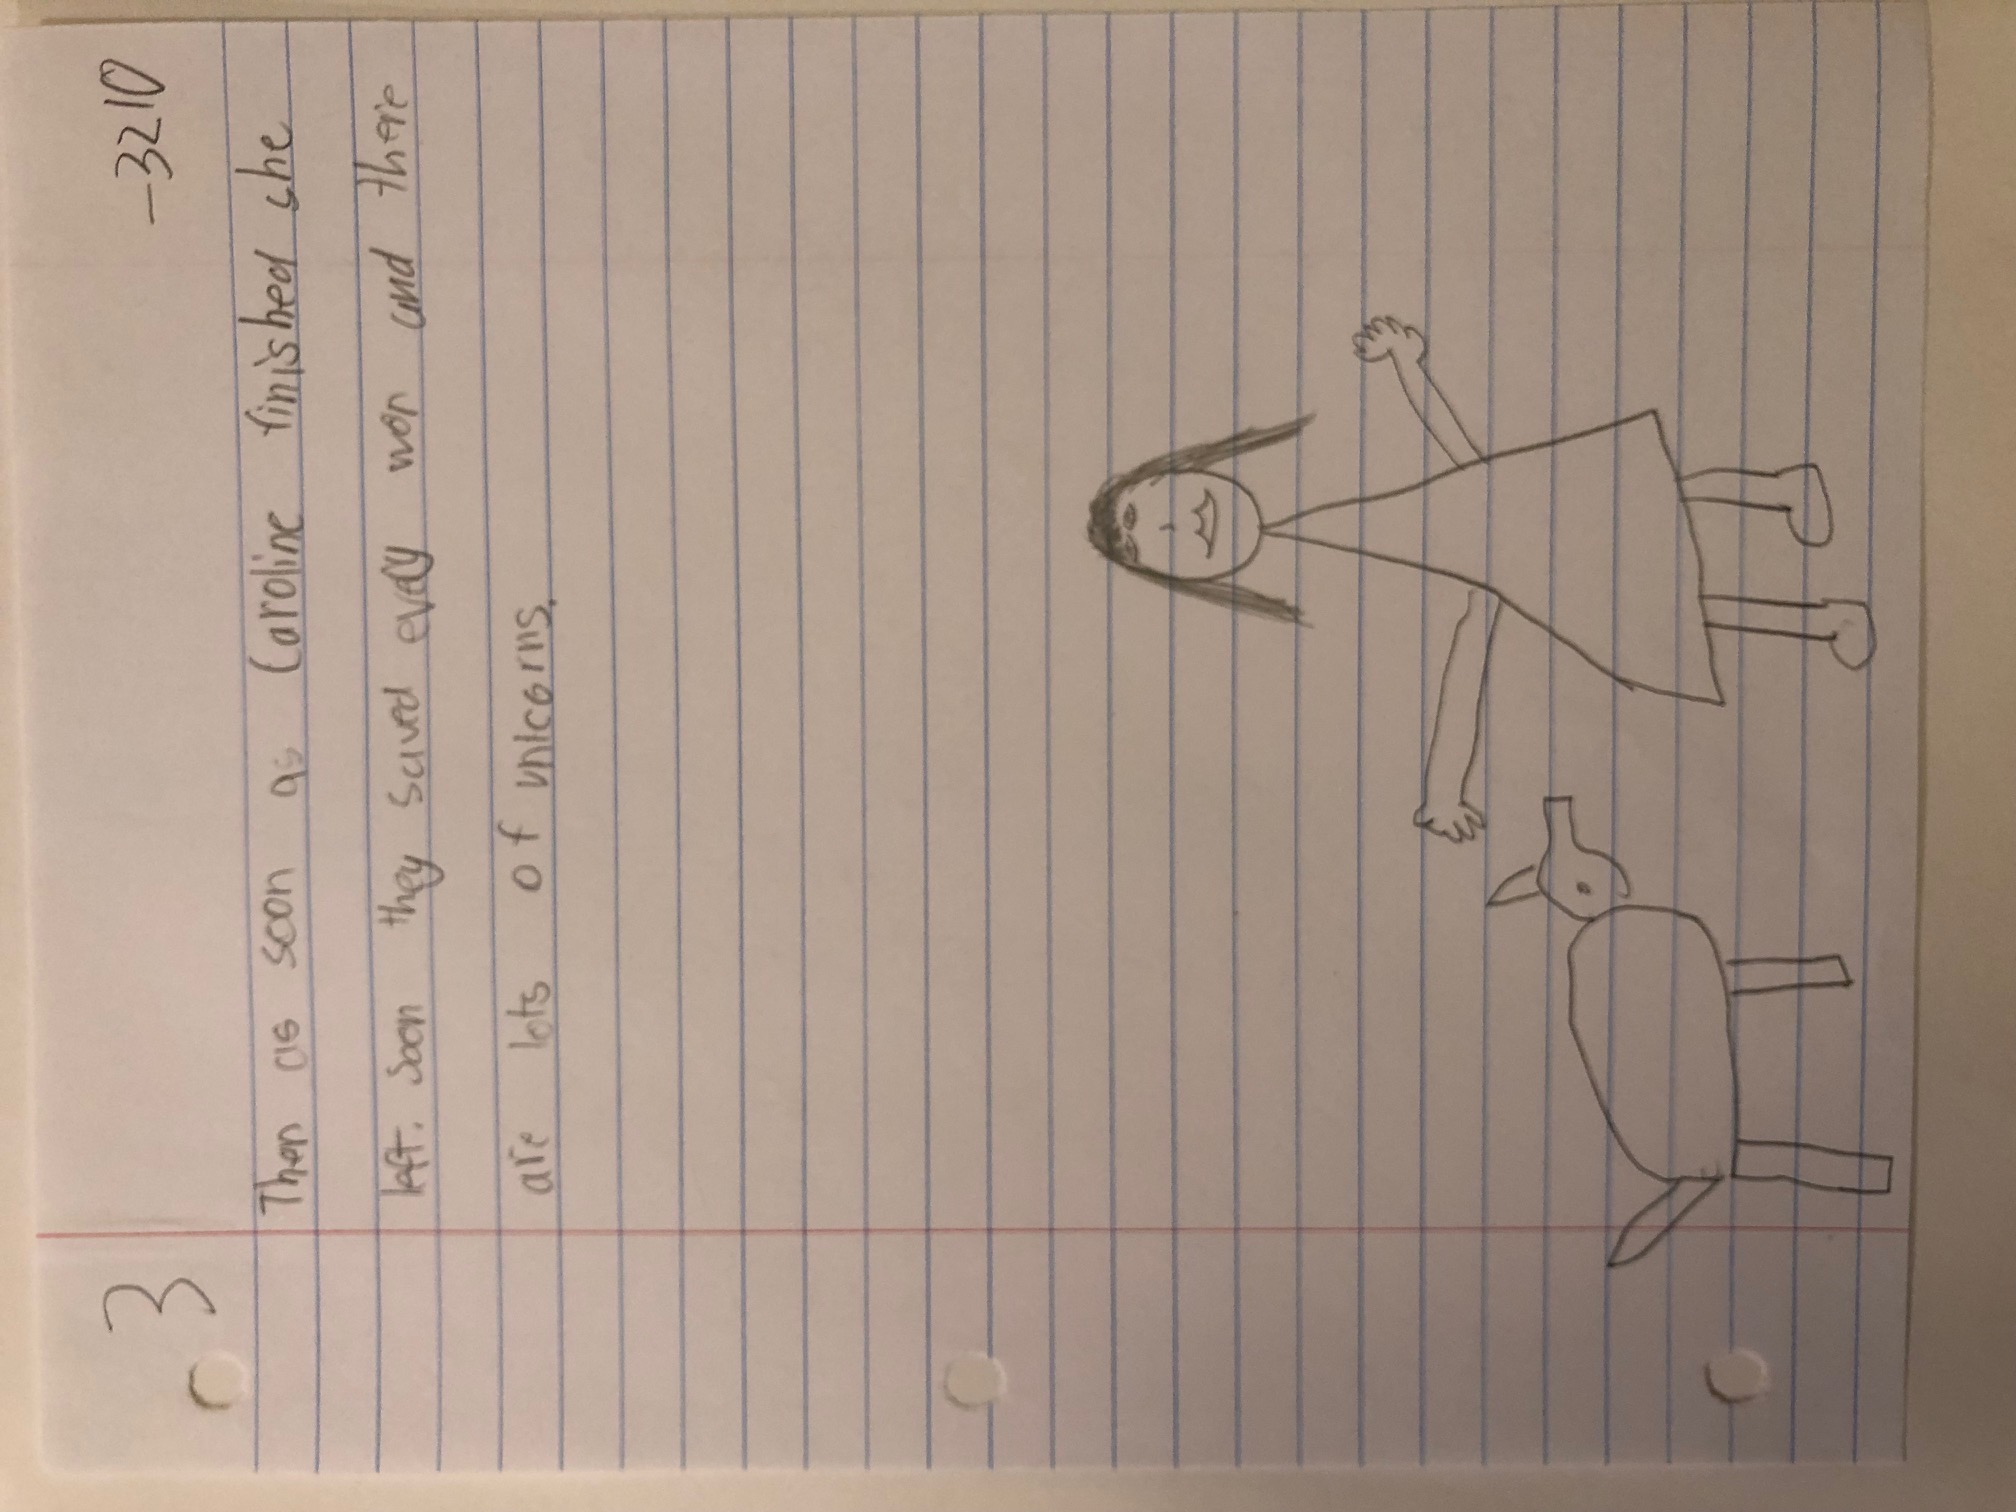 3
-3210
Then as soon as Caroline finished she
left. Soon they saved every won and there
are lots of unicorns.